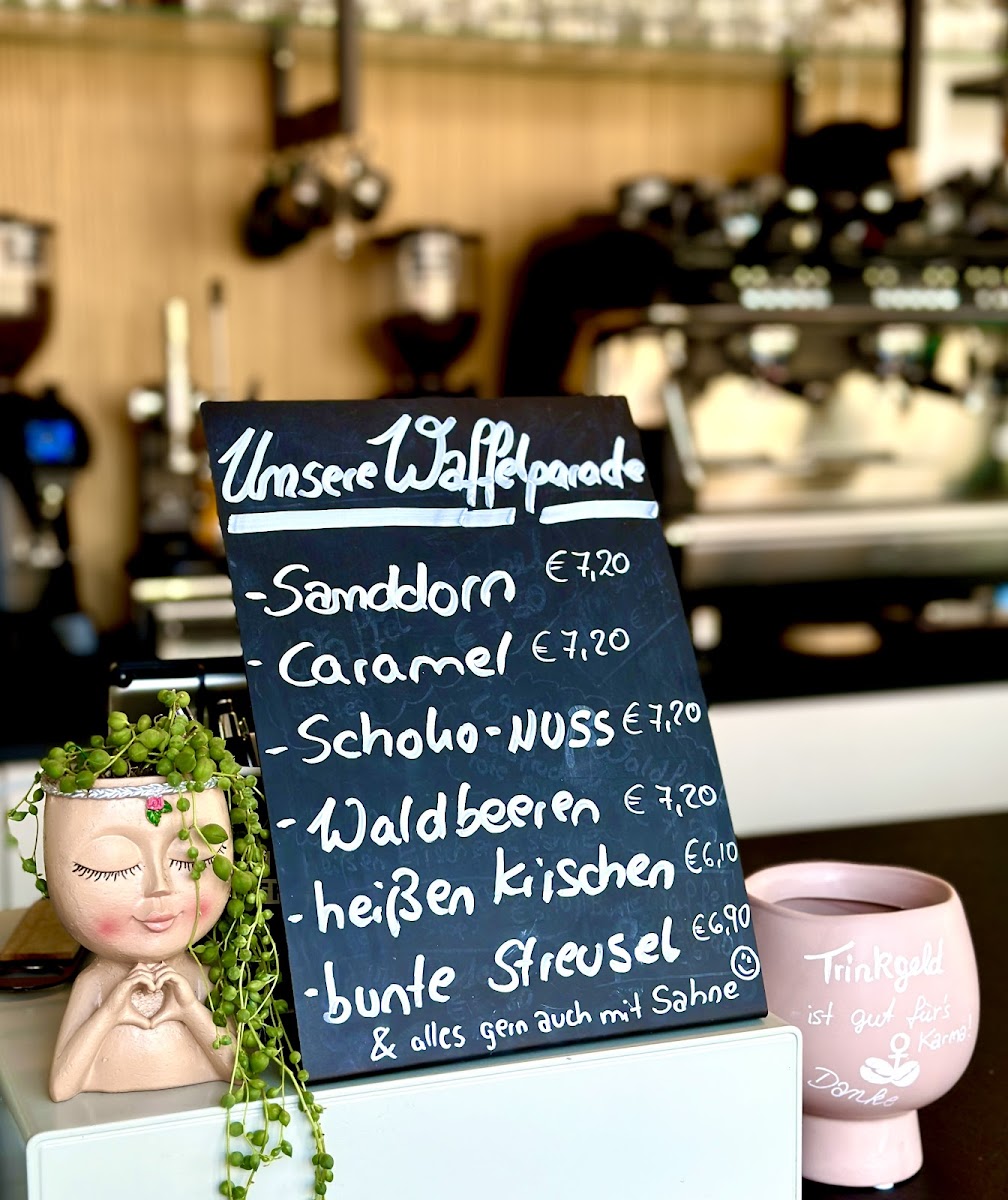 Unsere Waffelparade
- Sanddorn €7,20
- Caramel €7,20
- Schoko-NUSS €7,20
- Waldbeeren €7,20
- heißen Kirschen €6,10
- bunte Streusel €6,90
& alles gern auch mit Sahne
Trinkgeld
ist gut für's
Karma!
Danke